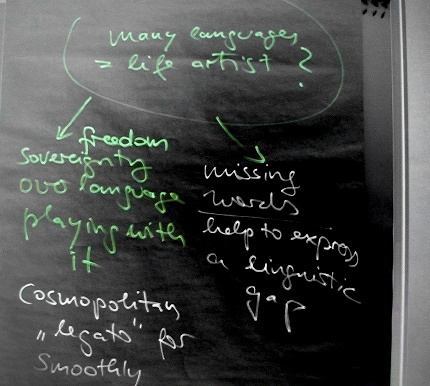 many languages
= life artist ?
freedom
sovereignty
over language
playing with
it
Cosmopolitan
„legato" for
smoothly
missing
words
help to express
a linguistic
gap